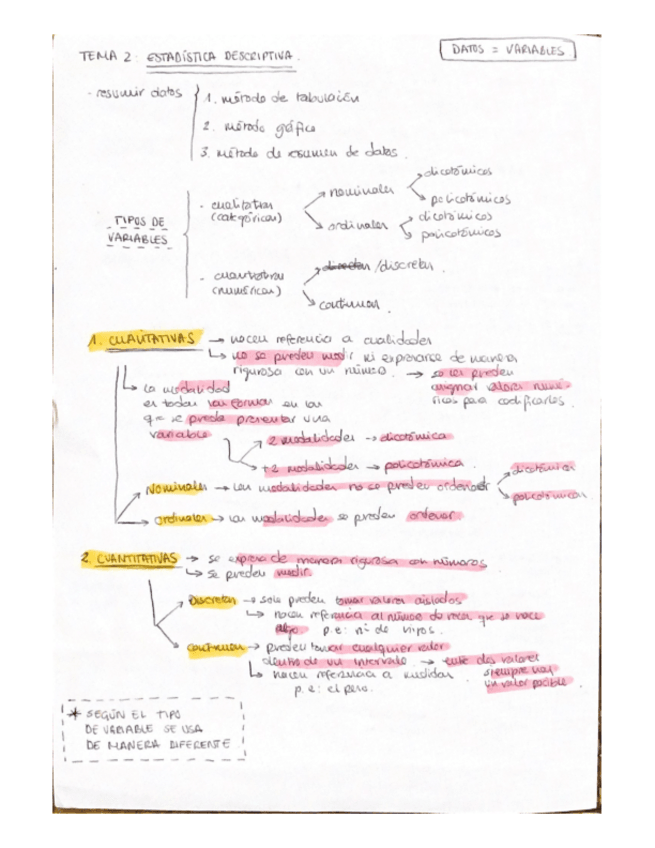 TEMA 2: ESTADÍSTICA DESCRIPTIVA.
DATOS = VARIABLES
- resumir datos
1. método de tabulación
2. método gráfico
3. método de resumen de datos.
TIPOS DE
VARIABLES
- cualitativas
(categóricas)
nominales
dicotómicos
policotómicos
ordinales
dicotómicos
policotómicos
- cuantitativas
(numéricas)
/discretas.
continuas.
1. CUALITATIVAS → hacen referencia a cualidades
↳ no se pueden medir ni expresarse de manera
rigurosa con un número. → se les pueden
asignar valores numé-
ricos para codificarlos.
↳ la modalidad
es todas las formas en las
q= se puede presentar una
variable
2 modalidades → dicotómica
+2 modalidades → policotómica.
Nominales → las modalidades no se pueden ordenar
dicotómicas
policotómicas
ordinales → las modalidades se pueden ordenar
2. CUANTITATIVAS → se expresa de manera rigurosa con números
↳ se pueden medir.
Discretas → solo pueden tomar valores aislados
↳ hacen referencia al número de veces que se hace
algo p.e: nº de hijos.
continuas → pueden tomar cualquier valor
dentro de un intervalo → entre dos valores
siempre hay
un valor posible
↳ hacen referencia a medidas.
p.e: el peso.
* SEGÚN EL TIPO
DE VARIABLE SE USA
DE MANERA DIFERENTE